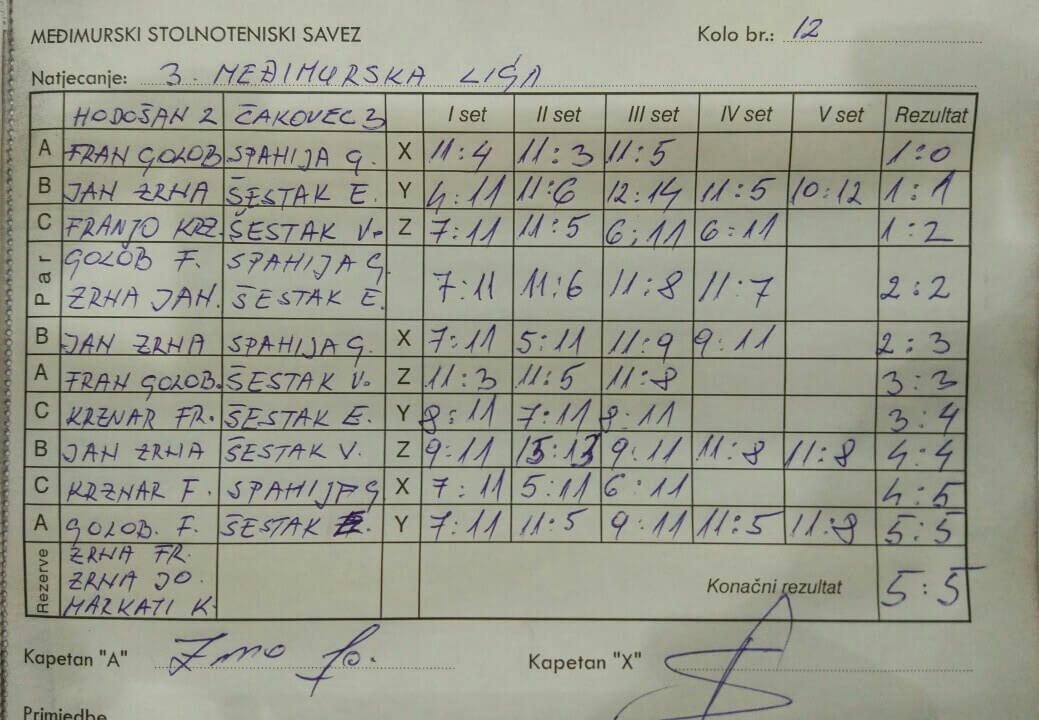 MEĐIMURSKI STOLNOTENISKI SAVEZ Kolo br.: 12
Natjecanje: 3. MEĐIMURSKA LIGA
HODOŠAN 2 ČAKOVEC 3 I set II set III set IV set V set Rezultat
A FRAN GOLOB SPAHIJA G. X 11:4 11:3 11:5 1:0
B JAN ZRNA ŠESTAK E. Y 4:11 11:6 12:14 11:5 10:12 1:1
C FRANJO KRZ. ŠESTAK V. Z 7:11 11:5 6:11 6:11 1:2
Par GOLOB F. SPAHIJA G.
ZRNA JAN. ŠESTAK E. 7:11 11:6 11:8 11:7 2:2
B JAN ZRNA SPAHIJA G. X 7:11 5:11 11:9 9:11 2:3
A FRAN GOLOB. ŠESTAK V. Z 11:3 11:5 11:8 3:3
C KRZNAR FR. ŠESTAK E. Y 8:11 7:11 8:11 3:4
B JAN ZRNA ŠESTAK V. Z 9:11 15:13 9:11 11:8 11:8 4:4
C KRZNAR F. SPAHIJA G X 7:11 5:11 6:11 4:5
A GOLOB. F. ŠESTAK E. Y 7:11 11:5 9:11 11:5 11:8 5:5
Rezerve ZRNA FR.
ZRNA JO.
MARKATI K. Konačni rezultat 5:5
Kapetan "A" Kapetan "X"
Primjedbe